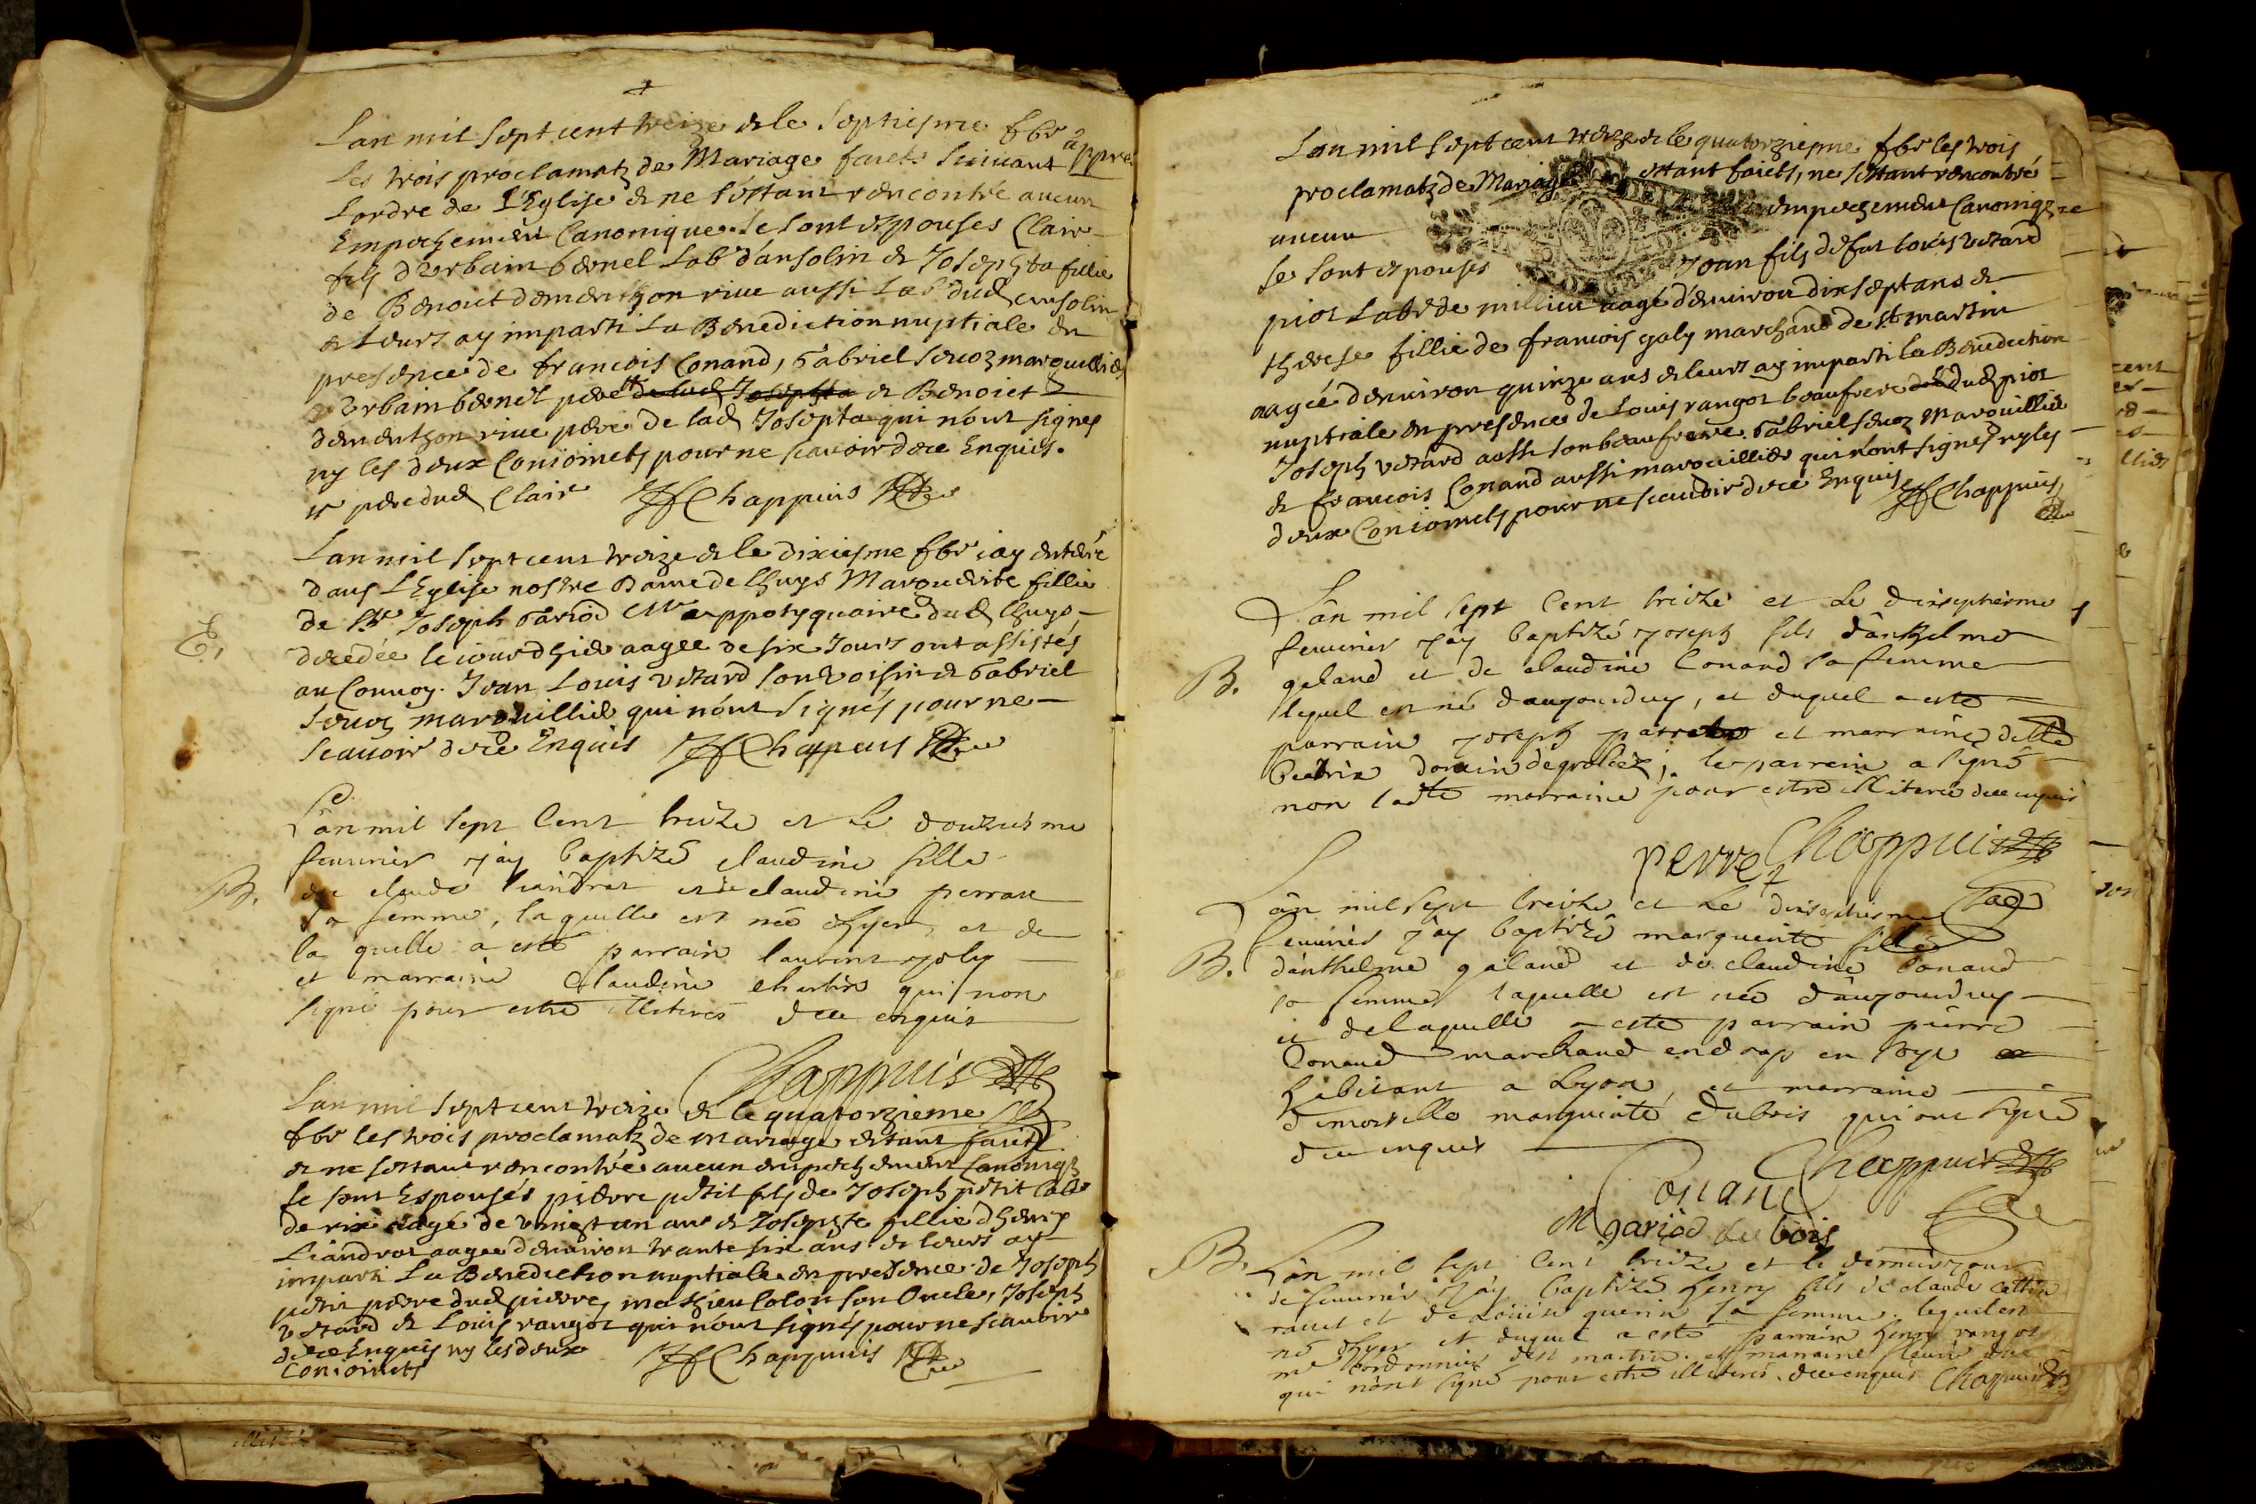 Lan mil sept cent treize & le septiesme fbr appres
les trois proclamatz de Mariage faicts suivant
lordre de L'Eglise & ne s'estant rencontré aucun
Empechement Canonique se sont espouses Clair
filz d'Urbain bernel lab d'ansolin & Josephta fillie
de Benoict dementhon rive aussi lab dud ansolin
& leurs ay imparti La Benediction nuptiale en
presence de francois Conand, Gabriel seuoz marguillier
Urbain bernel pere de lad Josephta & Benoict
dementhon rive pere de lad Josepta qui n'ont signes
ny les deux Conioincts pour ne scavoir de ce Enquis.
pere dud Clair Chappuis
E.
Lan mil sept cent treize & le dixiesme fbr iay enterré
dans L'Eglise nostre Dame de lhuys Marguerite fillie
de Sr Joseph Gariod Mre appotyquaire dud lhuys
decedée le iour d'hier aagee de six Jours ont assistés
au Convoy. Jean Louis vetard son voisin & Gabriel
seuoz marguillier qui n'ont signés pour ne
scavoir de ce Enquis Chappuis
B.
L'an mil sept Cent treize et Le douzieme
feuurier J'ay baptizé claudine fille
de claude liandrat et de claudine perrau
sa femme, laquelle est née d'hyer, et de
la quelle a esté parrain laurent joly
et marraine Claudine charlin qui non
signé pour estre illiteres de ce enquis
Chappuis
Lan mil sept cent treize & le quatorzieme
fbr les trois proclamatz de mariage estant faict
& ne sestant rencontré aucun empechement Canoniq
se sont Espousés pierre petit filz de Joseph petit lab
de rix aagé de vingt un ans & Josephte fillie d'henry
Liandrat aagee d'environ trante six ans & leurs ay
imparti La Benediction nuptiale en presence de Joseph
petit pere dud pierre, mathieu Colon son Oncle, Joseph
vetard & Louis rangot qui n'ont signés pour ne scavoir
de ce Enquis ny les deux
Conioincts Chappuis
Lan mil sept cent treize & le quatorziesme fbr les trois
proclamatz de Mariage estant faicts, ne s'estant rencontré
aucun empechement Canonique
se sont espouses Jean filz de feu louis vetard
piot Labr de millieu aagé d'environ dix sept ans &
therese fillie de francois galy marchand de st martin
aagée d'environ quinze ans & leurs ay imparti la Benediction
nuptiale en presence de Louis rangot beaufrere dud piot
Joseph vetard aussi son beaufrere Gabriel seuoz marouillier
& francois Conand aussi marouillier qui n'ont signes ny les
deux Conioincts pour ne scavoir de ce Enquis Chappuis
B.
L'an mil sept Cent treize et Le dixseptiesme
feuurier J'ay baptizé joseph fils d'anthelme
galand et de claudine Conand sa femme
lequel est né d'aujourduy, et duquel a esté
parrain joseph et marraine delle
beatrix dorein degroliez; le parrein a signé
non ladte marraine pour estre illiteree de ce enquis
perret Chappuis
B.
L'an mil sept treize et Le dixseptiesme
feuurier J'ay baptizé marguerite fille
d'anthelme galand et de claudine Conand
sa femme laquelle est née d'aujourduy
et de laquelle a esté parrain pierre
Conand marchand en drap en soye
habitant a Lyon, et marraine
demoiselle marguerite dubois qui ont signé
de ce enquis
Conand Chappuis
M gariod du bois
B.
L'an mil sept Cent treize et le dernier jour
de feuurier J'ay baptizé henry fils de claude cottin
ravet et de Louise guerin sa femme. lequel est
né d'hyer et duquel a esté parrain henry rangot
me Cordonnier de st martin et marraine
qui n'ont signé pour estre illiteres. de ce enquis Chappuis